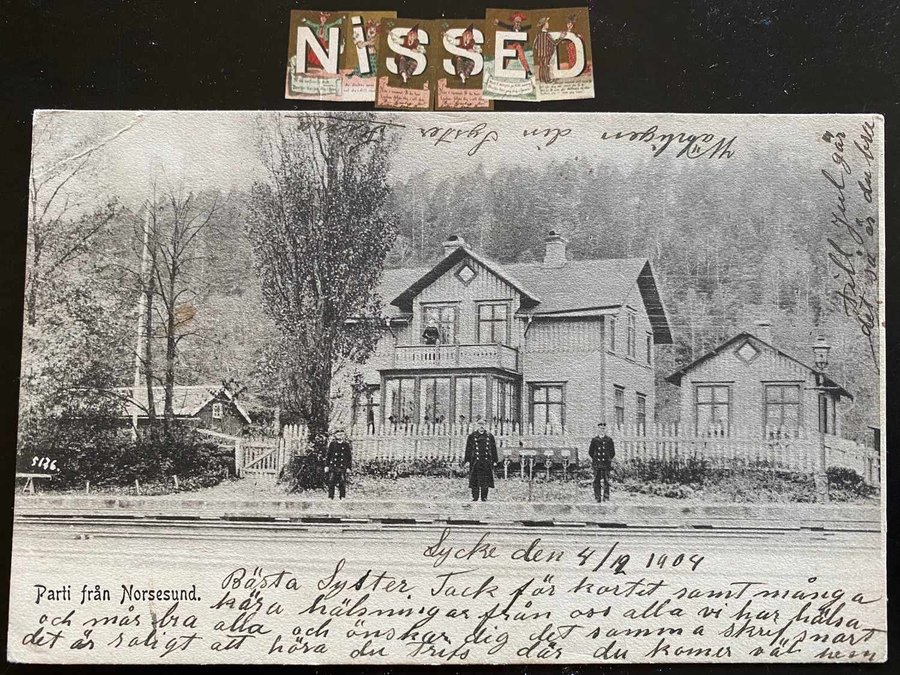 NISSED
Wänligen din Syster
till jul går
det nå är du bra
5176.
Sycke den 4/12 1904
Parti från Norsesund.
Bästa Syster. Tack för kortet samt många
kära hälsningar från oss alla vi har hälsa
och mår bra alla och önskar dig det samma skrif snart
det är roligt att höra du trifs där du komer väl hem